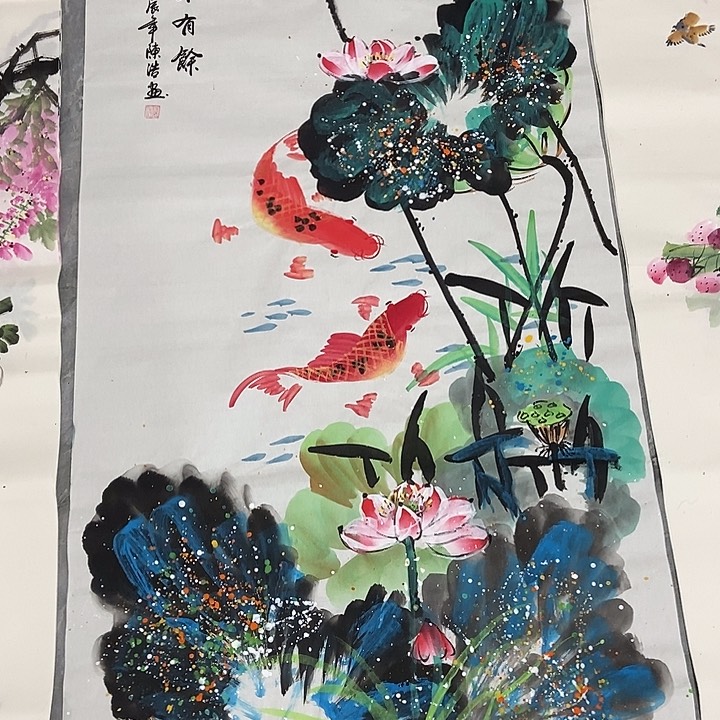 有餘
辰年陳浩畫